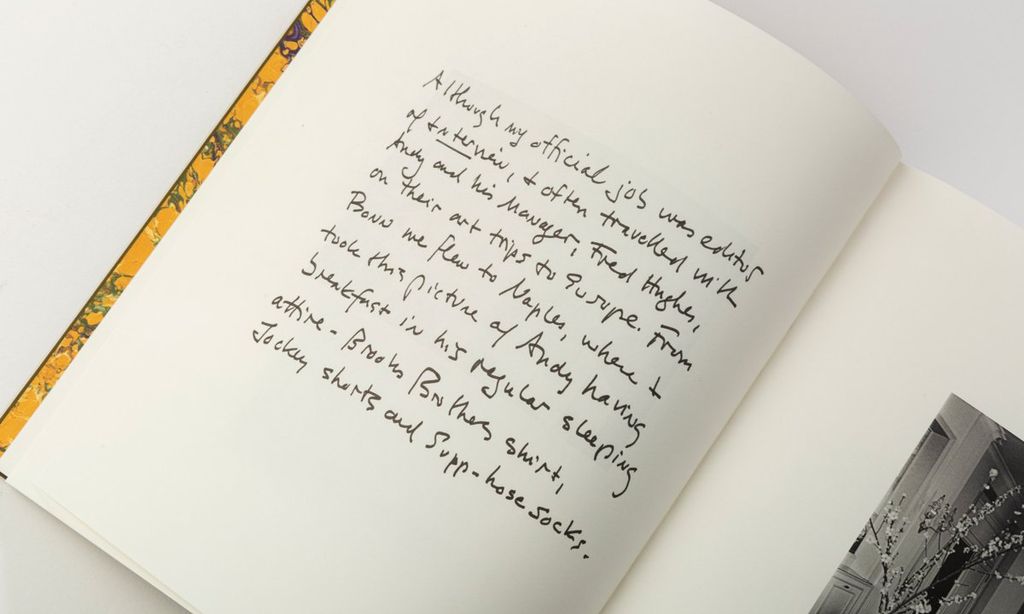 Although my official job was editor
of Interview, I often travelled with
Andy and his manager, Fred Hughes,
on their art trips to Europe. From
Bonn we flew to Naples, where I
took this picture of Andy having
breakfast in his regular sleeping
attire - Brooks Brothers shirt,
Jockey shorts and Supp-hose socks.